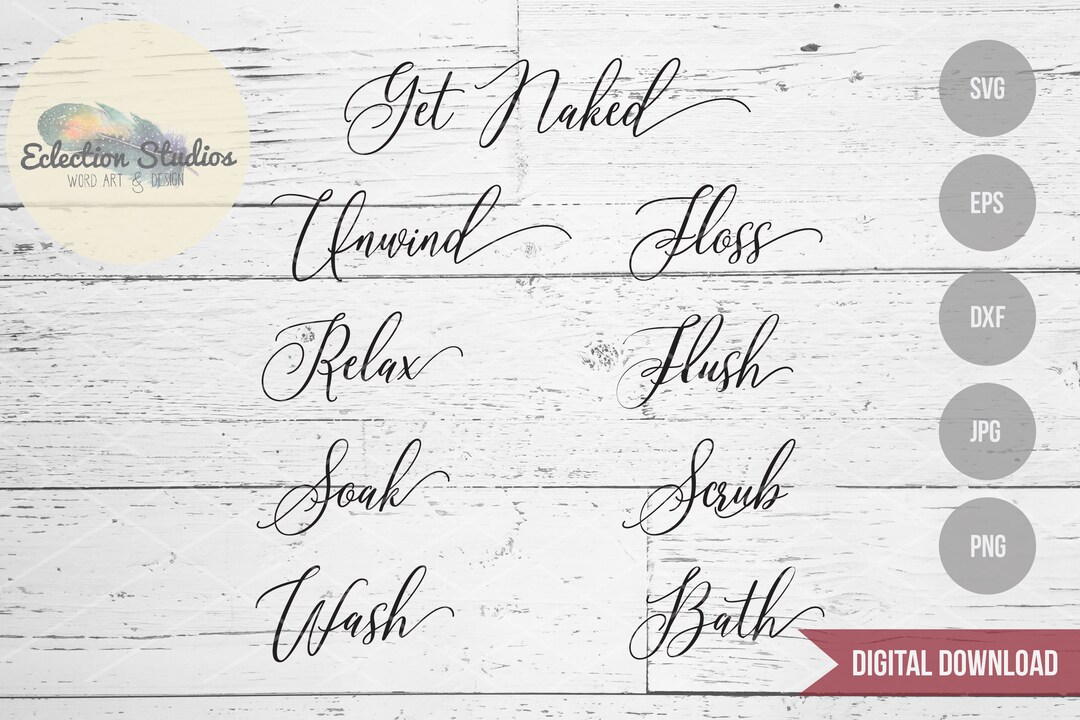 Eclection Studios
WORD ART & DESIGN
Get Naked
Unwind
Floss
Relax
Flush
Soak
Scrub
Wash
Bath
SVG
EPS
DXF
JPG
PNG
DIGITAL DOWNLOAD